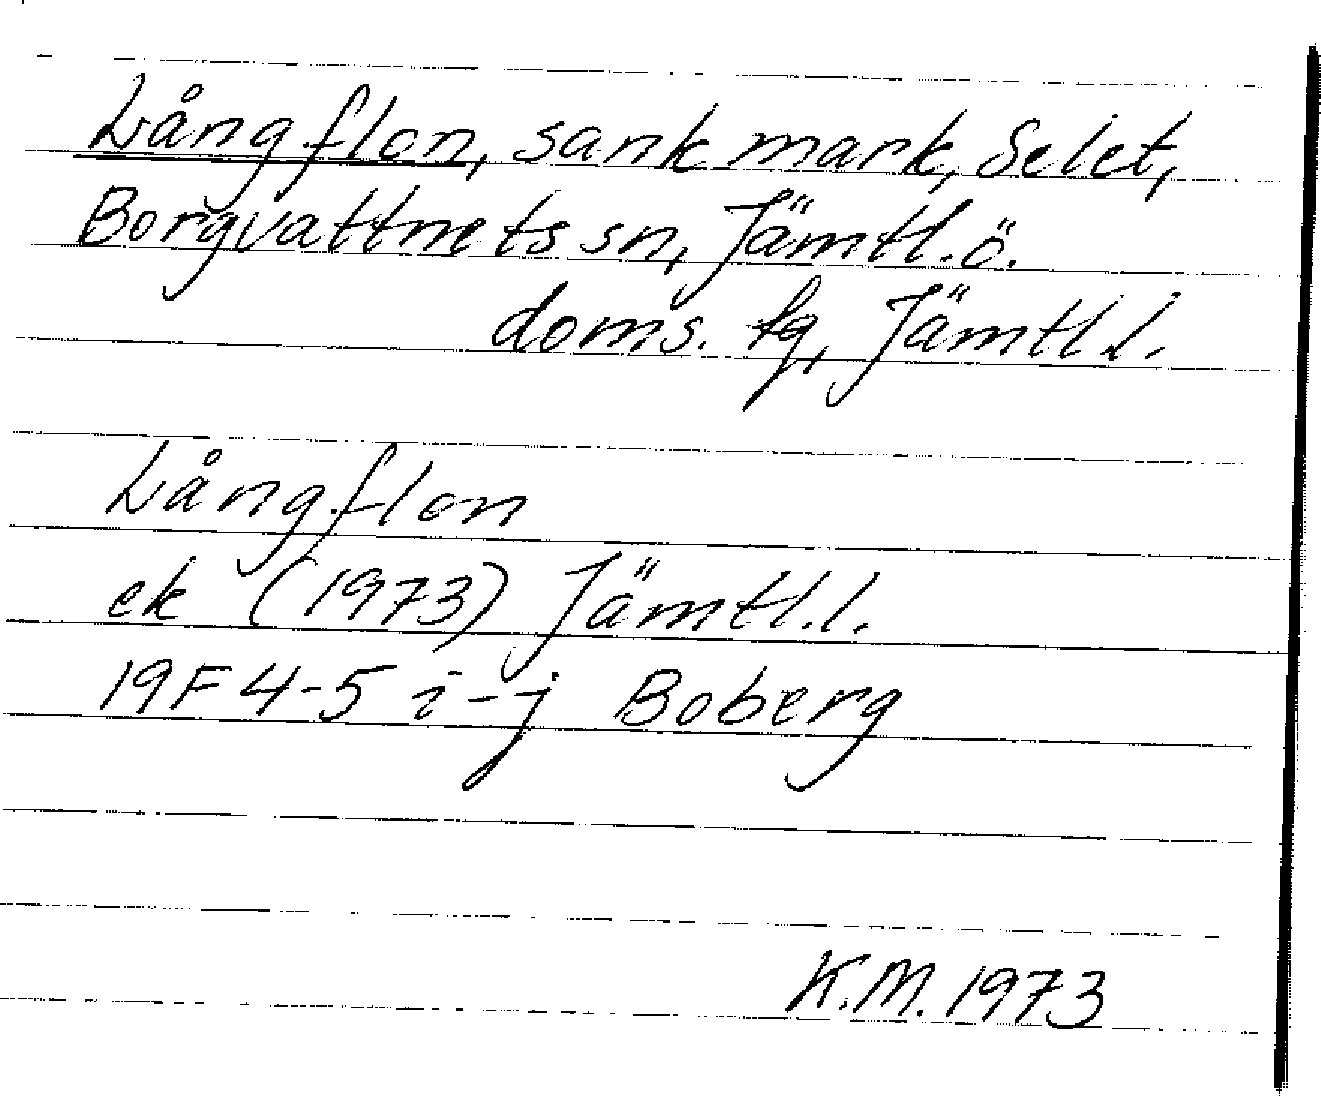 Långflon, sank mark, Selet,
Borgvattnets sn, Jämtl.ö.
doms. fg, Jämtl.l.
Långflon
ek (1973) Jämtl.l.
19F 4-5 i-j Boberg
K.M. 1973